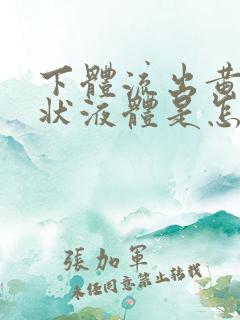 下體流出黄
狀液體是怎
張加軍
未经同意禁止转载